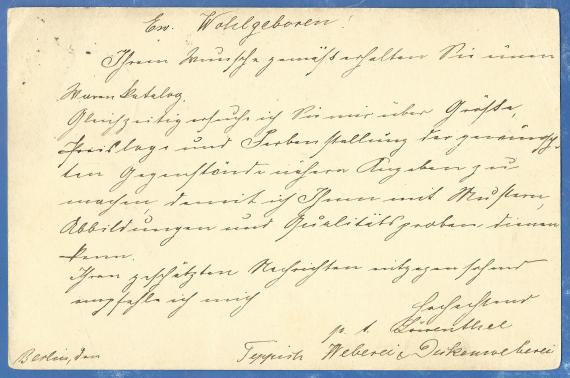 Ew. Wohlgeboren!
Ihrem Wunsche gemäß erhalten Sie einen
Warenkatalog.
Gleichzeitig ersuche ich Sie mir über Größe,
Preislage und Farbenstellung der gewünsch-
ten Gegenstände nähere Angaben zu
machen damit ich Ihnen mit Mustern,
Abbildungen und Qualitätsproben dienen
kann.
Ihren geschätzten Nachrichten entgegensehend
empfehle ich mich
Hochachtend
Teppich Weberei & Deckenweberei
Berlin, den